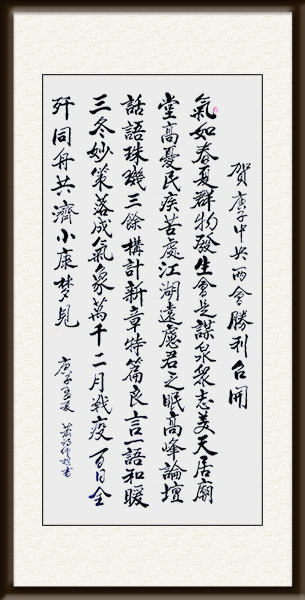 賀庚子中央两會勝利召開
氣如春夏群物發生會是謀泉黎志美天居廟
堂高憂民疾苦處江湖遠慮君之眠高峰論壇
話語珠璣三餘構計新章特篇良言一語和暖
三冬妙策落成氣象萬千二月戰疫百日全
歼同舟共濟小康梦見
庚子孟夏